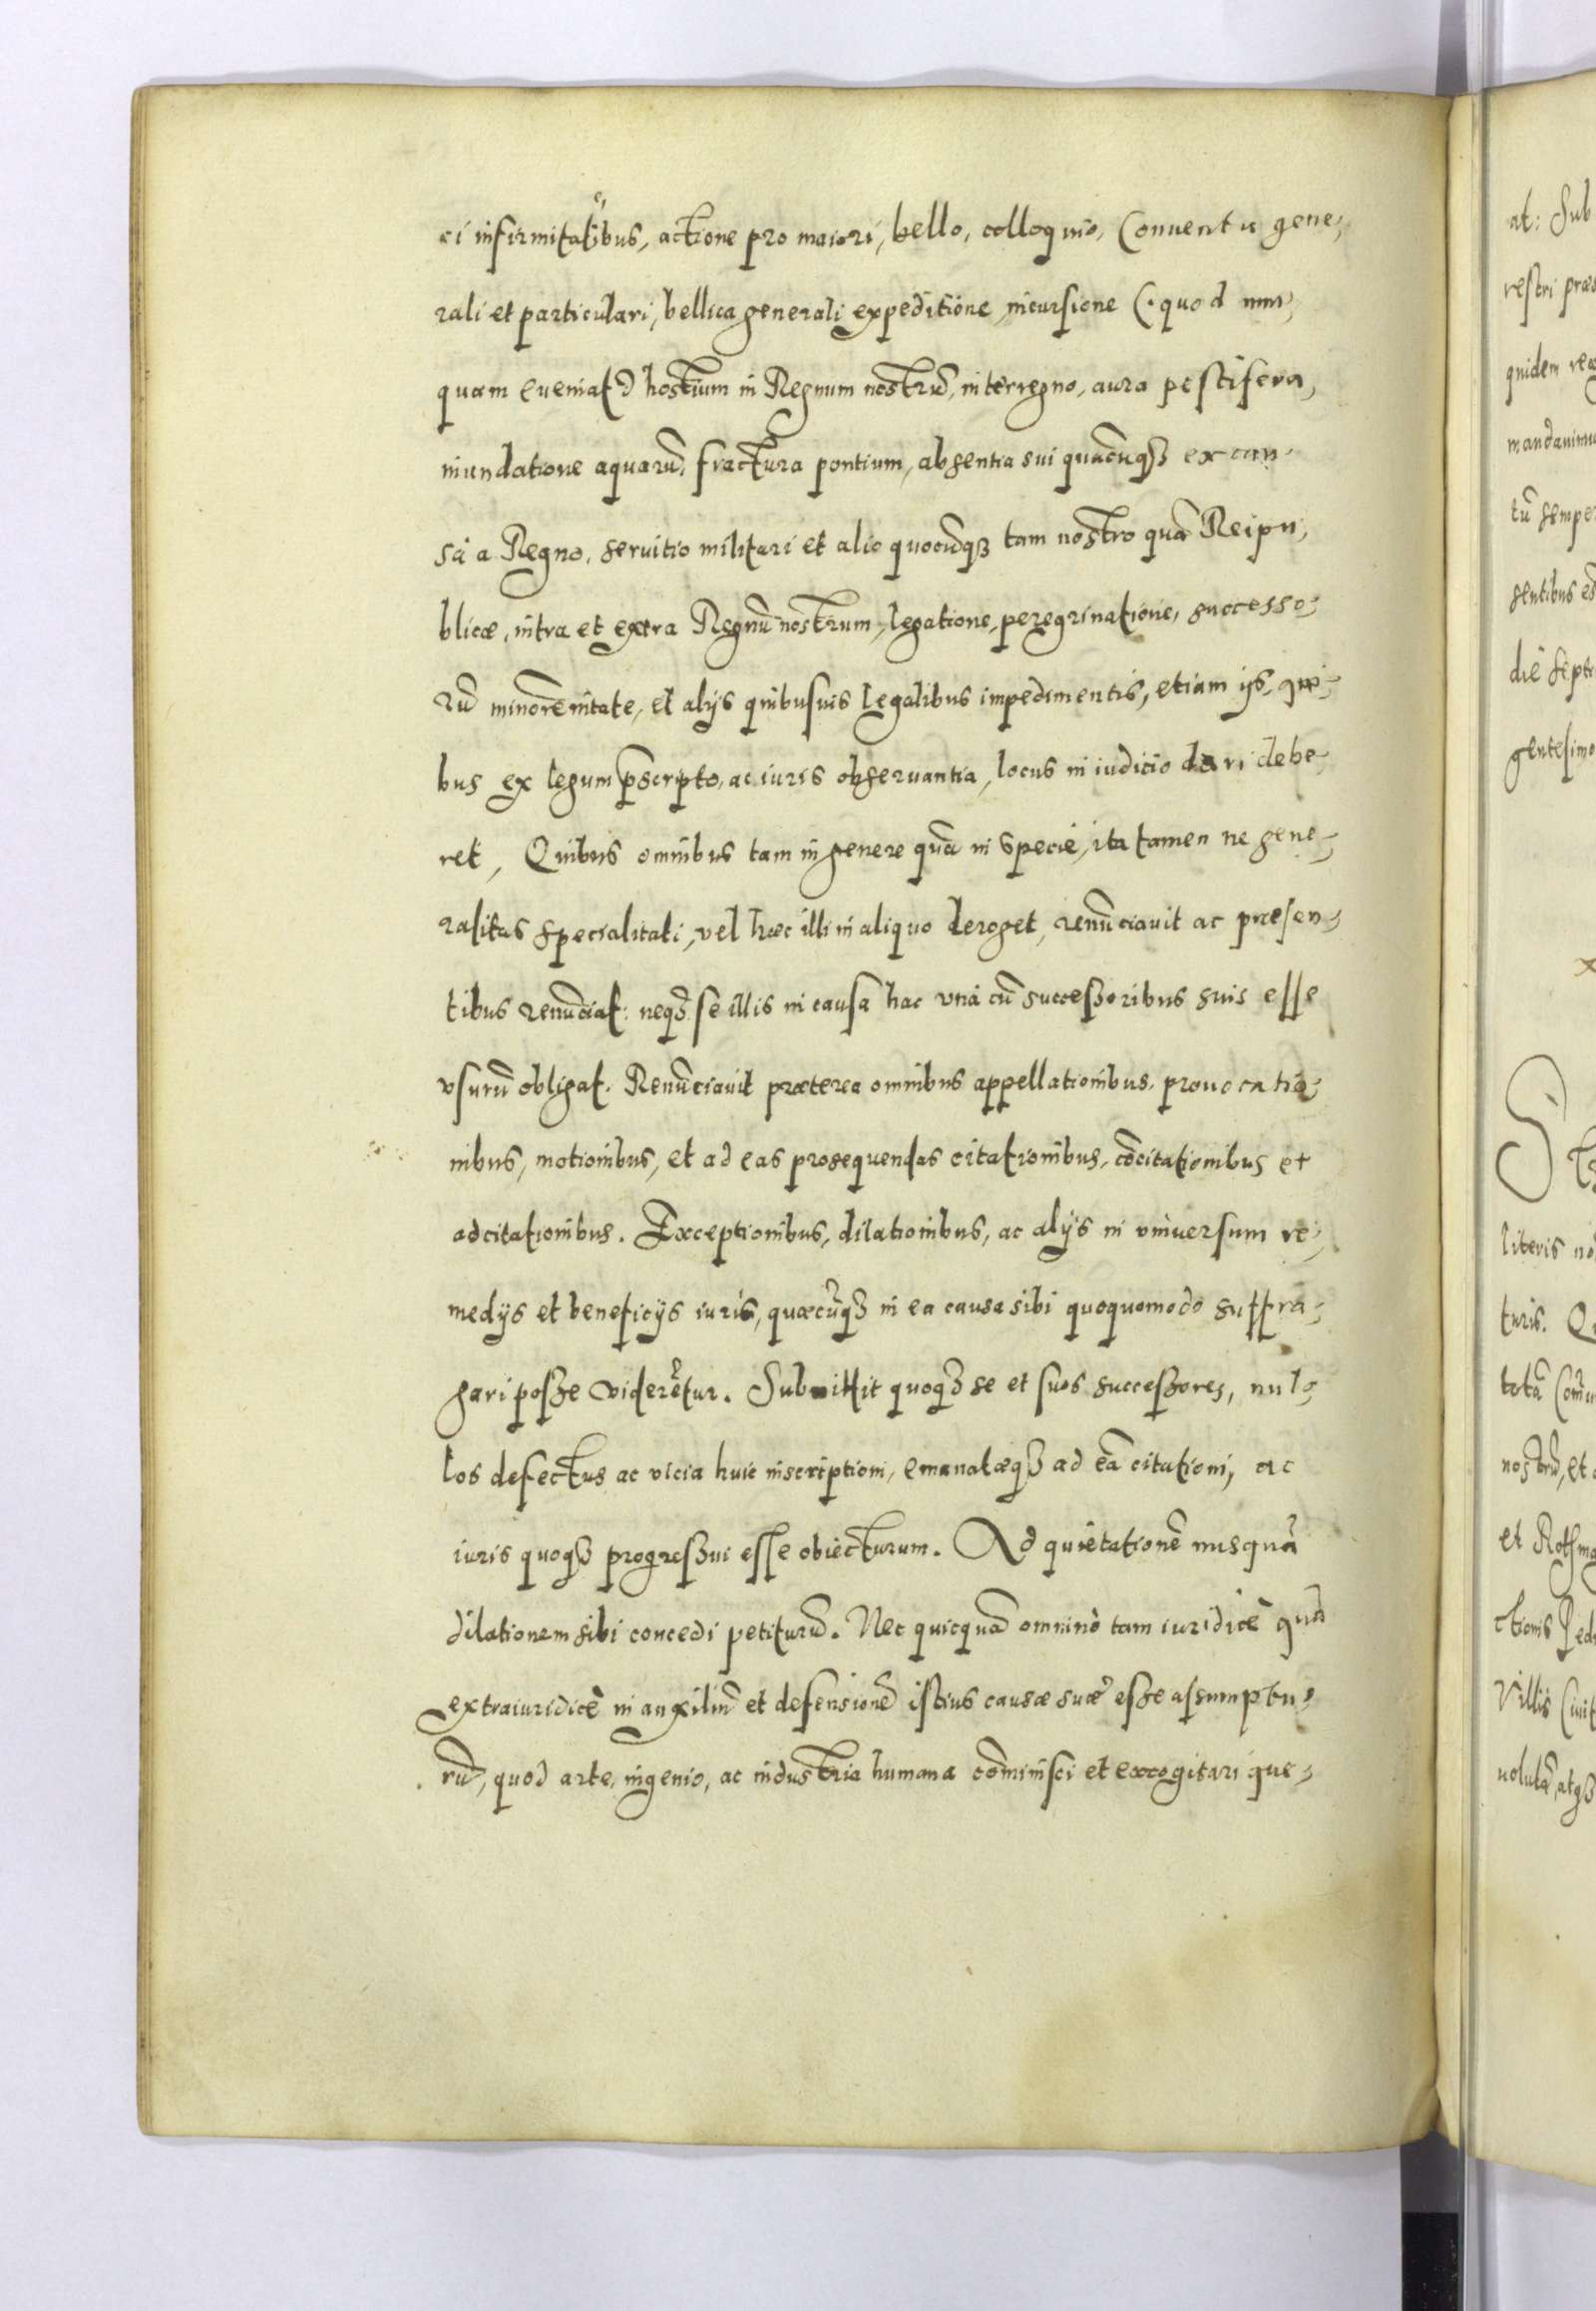 ci infirmitatibus, actione pro maiori, bello, colloquio, Conuentu gene,
rali et particulari, bellica generali expeditione, incursione (: quod nun,
quam eueniat :) hostium in Regnum nostrũ, interregno, aura pestifera,
inundatione aquarũ, fractura pontium, absentia sui quacũqꝫ ex cau,
sa a Regno, seruitio militari et alio quocũqꝫ tam nostro quã Reipu,
blicæ, intra et extra Regnũ nostrum, legatione, peregrinatione, successo,
rũ minorẽnitate, et alijs quibusuis legalibus impedimentis, etiam ijs, qui,
bus ex legum p̃scripto, ac iuris obseruantia, locus in iudicio dari debe,
ret, Quibus omnibus tam in genere quã in specie, ita tamen ne gene,
ralitas specialitati, vel hæc illi in aliquo deroget, renũciauit ac præsen,
tibus renũciat: neqꝫ se illis in causa hac vnà cũ successoribus suis esse
vsurũ obligat. Renũciauit præterea omnibus appellationibus, prouocatio,
nibus, motionibus, et ad eas prosequendas citationibus, cõcitationibus et
adcitationibus. Exceptionibus, dilationibus, ac alijs in vniuersum re,
medijs et beneficijs iuris, quæcũqꝫ in ea causa sibi quoquomodo suffra,
gari posse viderẽtur. Submittit quoqꝫ se et suos successores, nul,
los defectus ac vicia huic inscriptioni, emanatæqꝫ ad eã citationi, ac
iuris quoqꝫ progressui esse obiecturum. Ad quietationẽ nusquã
dilationem sibi concedi petiturũ. Nec quicquã omninò tam iuridicè quã
extraiuridicè in auxiliũ et defensionẽ istius causæ suæ esse assumptu,
rũ, quod arte, ingenio, ac industria humana cõminisci et excogitari que,
at: Sub
restri præs
quidem
mandauimus
tũ sempe
sentibus
die septi
gentesimo
literis no
turis.
totã
nostrũ, et
et
ctionis
Villis Ciuit
uolutã, atqꝫ